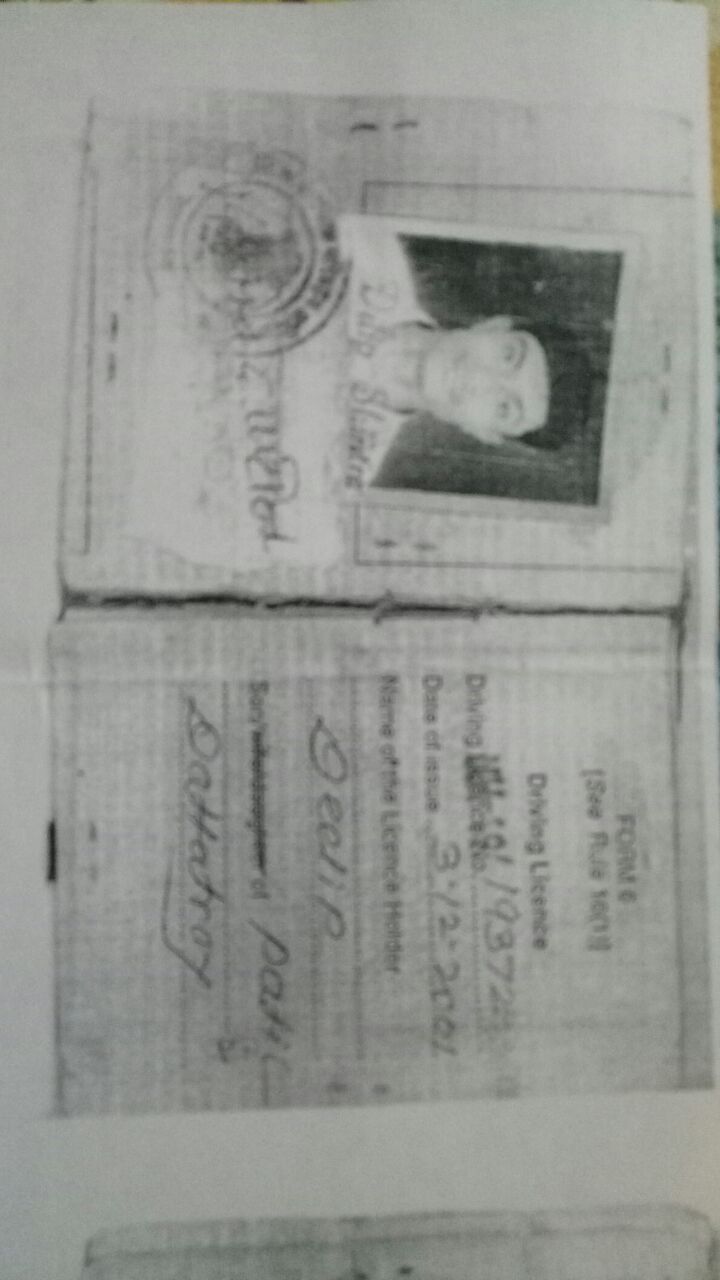 Dilip Shindre
FORM 6
[See Rule 16(1)]
Driving Licence
Driving Licence No. /19372
Date of issue 3-12-2001
Name of the Licence Holder
Deelip
Son/wife/daughter of Patil
Dattatray